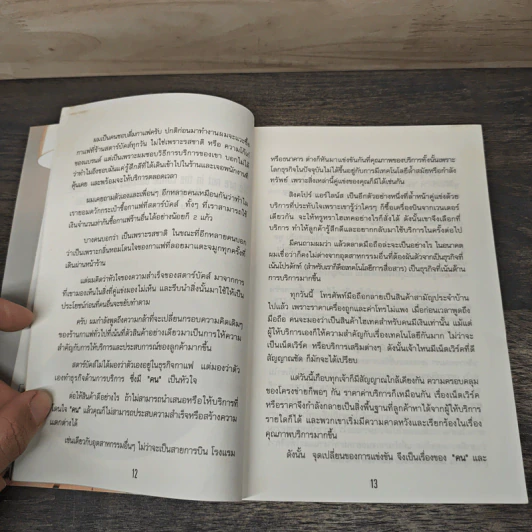 ผมเป็นคนชอบดื่มกาแฟครับ ปกติก่อนมาทำงานผมจะแวะซื้อ
กาแฟที่ร้านสตาร์บัคส์ทุกวัน ไม่ใช่เพราะรสชาติ หรือ ความมีชื่อ
ของแบรนด์ แต่เป็นเพราะผมชอบวิธีการบริการของเขา บอกไม่ได้
ว่าทำไมถึงชอบมันแค่รู้สึกดีที่ได้เดินเข้าไปในร้านและเจอพนักงานที่
คุ้นเคย และพร้อมจะให้บริการตลอดเวลา
ผมเคยถามตัวเองและเพื่อนๆ อีกหลายคนเหมือนกันว่าทำไม
เรายอมควักกระเป๋าซื้อกาแฟที่สตาร์บัคส์ ทั้งๆ ที่เราสามารถใช้
เงินจำนวนเท่ากันซื้อกาแฟร้านอื่นได้อย่างน้อยก็ 2 แก้ว
บางคนบอกว่า เป็นเพราะรสชาติ ในขณะที่อีกหลายคนบอก
ว่าเป็นเพราะกลิ่นหอมโดนใจของกาแฟที่ลอยมาแตะจมูกทุกครั้งที่
เดินผ่านหน้าร้าน
แต่ผมคิดว่าหัวใจของความสำเร็จของสตาร์บัคส์ มาจากการ
ที่เขามองเห็นในสิ่งที่คู่แข่งมองไม่เห็น และรีบนำสิ่งนั้นมาใช้ให้เป็น
ประโยชน์ก่อนที่คนอื่นจะขยับทำตาม
ครับ ผมกำลังพูดถึงความกล้าที่จะเปลี่ยนกรอบความคิดเดิมๆ
ของร้านกาแฟทั่วไปที่เน้นที่ตัวสินค้าอย่างเดียวมาเป็นการให้ความ
สำคัญกับการให้บริการและประสบการณ์ของลูกค้ามากขึ้น
สตาร์บัคส์ไม่ได้มองว่าตัวเองอยู่ในธุรกิจกาแฟ แต่มองว่าตัว
เองทำธุรกิจด้านการบริการ ซึ่งมี "คน" เป็นหัวใจ
ต่อให้สินค้าดีอย่างไร ถ้าไม่สามารถนำเสนอหรือให้บริการที่
โดนใจ "คน" แล้วคุณก็ไม่สามารถประสบความสำเร็จหรือสร้างความ
แตกต่างได้
เช่นเดียวกับอุตสาหกรรมอื่นๆ ไม่ว่าจะเป็นสายการบิน โรงแรม
12
หรือธนาคาร ต่างก็หันมาแข่งขันกันที่คุณภาพของบริการทั้งนั้นเพราะ
โลกธุรกิจในปัจจุบันไม่ได้วัดกันที่ใครอยู่กับการมีเทคโนโลยีล้ำสมัยหรือกำลัง
ทรัพย์ เพราะสิ่งเหล่านี้คู่แข่งของคุณก็มีได้เช่นกัน
สิงคโปร์ แอร์ไลน์ส เป็นอีกตัวอย่างหนึ่งที่ล้ำหน้าคู่แข่งด้วย
บริการที่ประทับใจเพราะเขารู้ว่าใครๆ ก็ซื้อเครื่องบินจากเวนเดอร์
เดียวกัน จะให้หรูหราไฮเทคอย่างไรก็สั่งได้ ดังนั้นเขาจึงเลือกที่
บริการ ทำให้ลูกค้ารู้สึกดีและอยากกลับมาใช้บริการในครั้งต่อไป
มีคนถามผมว่า แล้วตลาดมือถือล่ะจะเป็นอย่างไร ในอนาคต
ผมเชื่อว่าก็คงไม่ต่างจากอุตสาหกรรมอื่นที่ต้องผันตัวจากเป็นธุรกิจที่
เน้นโปรดักท์ (สำหรับเราก็คือเทคโนโลยีการสื่อสาร) เป็นธุรกิจที่เน้นด้าน
การบริการมากขึ้น
ทุกวันนี้ โทรศัพท์มือถือกลายเป็นสินค้าสามัญประจำบ้าน
ไปแล้ว เพราะราคาเครื่องถูกและค่าโทรไม่แพง เมื่อก่อนเวลาพูดถึง
มือถือ คนจะมองว่าเป็นสินค้าไฮเทคสำหรับคนมีเงินเท่านั้น แม้แต่
ผู้ให้บริการเองก็ให้ความสำคัญกับเรื่องเทคโนโลยีกันมาก ไม่ว่าจะ
เป็นเน็ตเวิร์ค หรือบริการเสริมต่างๆ ดังนั้นเจ้าไหนมีเน็ตเวิร์คที่ดี
สัญญาณชัด ก็มักจะได้เปรียบ
แต่วันนี้เกือบทุกเจ้าก็มีสัญญาณใกล้เคียงกัน ความครอบคลุม
ของโครงข่ายก็พอๆ กัน ราคาค่าบริการก็เหมือนกัน เรื่องเน็ตเวิร์ค
หรือราคาจึงกำลังกลายเป็นสิ่งพื้นฐานที่ลูกค้าหาได้จากผู้ให้บริการ
รายใดก็ได้ และพวกเขาเริ่มมีความคาดหวังและเรียกร้องในเรื่อง
คุณภาพบริการมากขึ้น
ดังนั้น จุดเปลี่ยนของการแข่งขัน จึงเป็นเรื่องของ "คน" และ
13